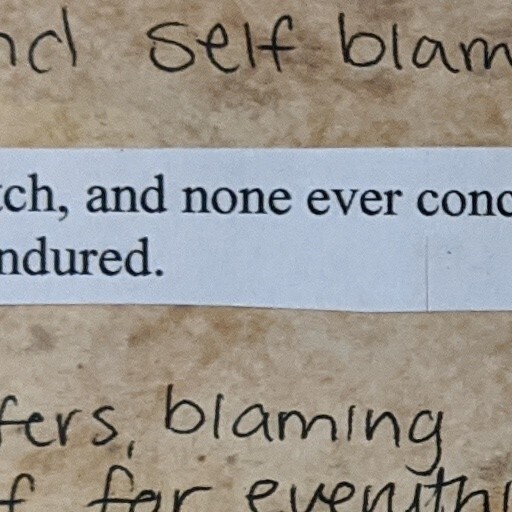 nd self blam
tch, and none ever conc
ndured.
fers, blaming
f for everythi